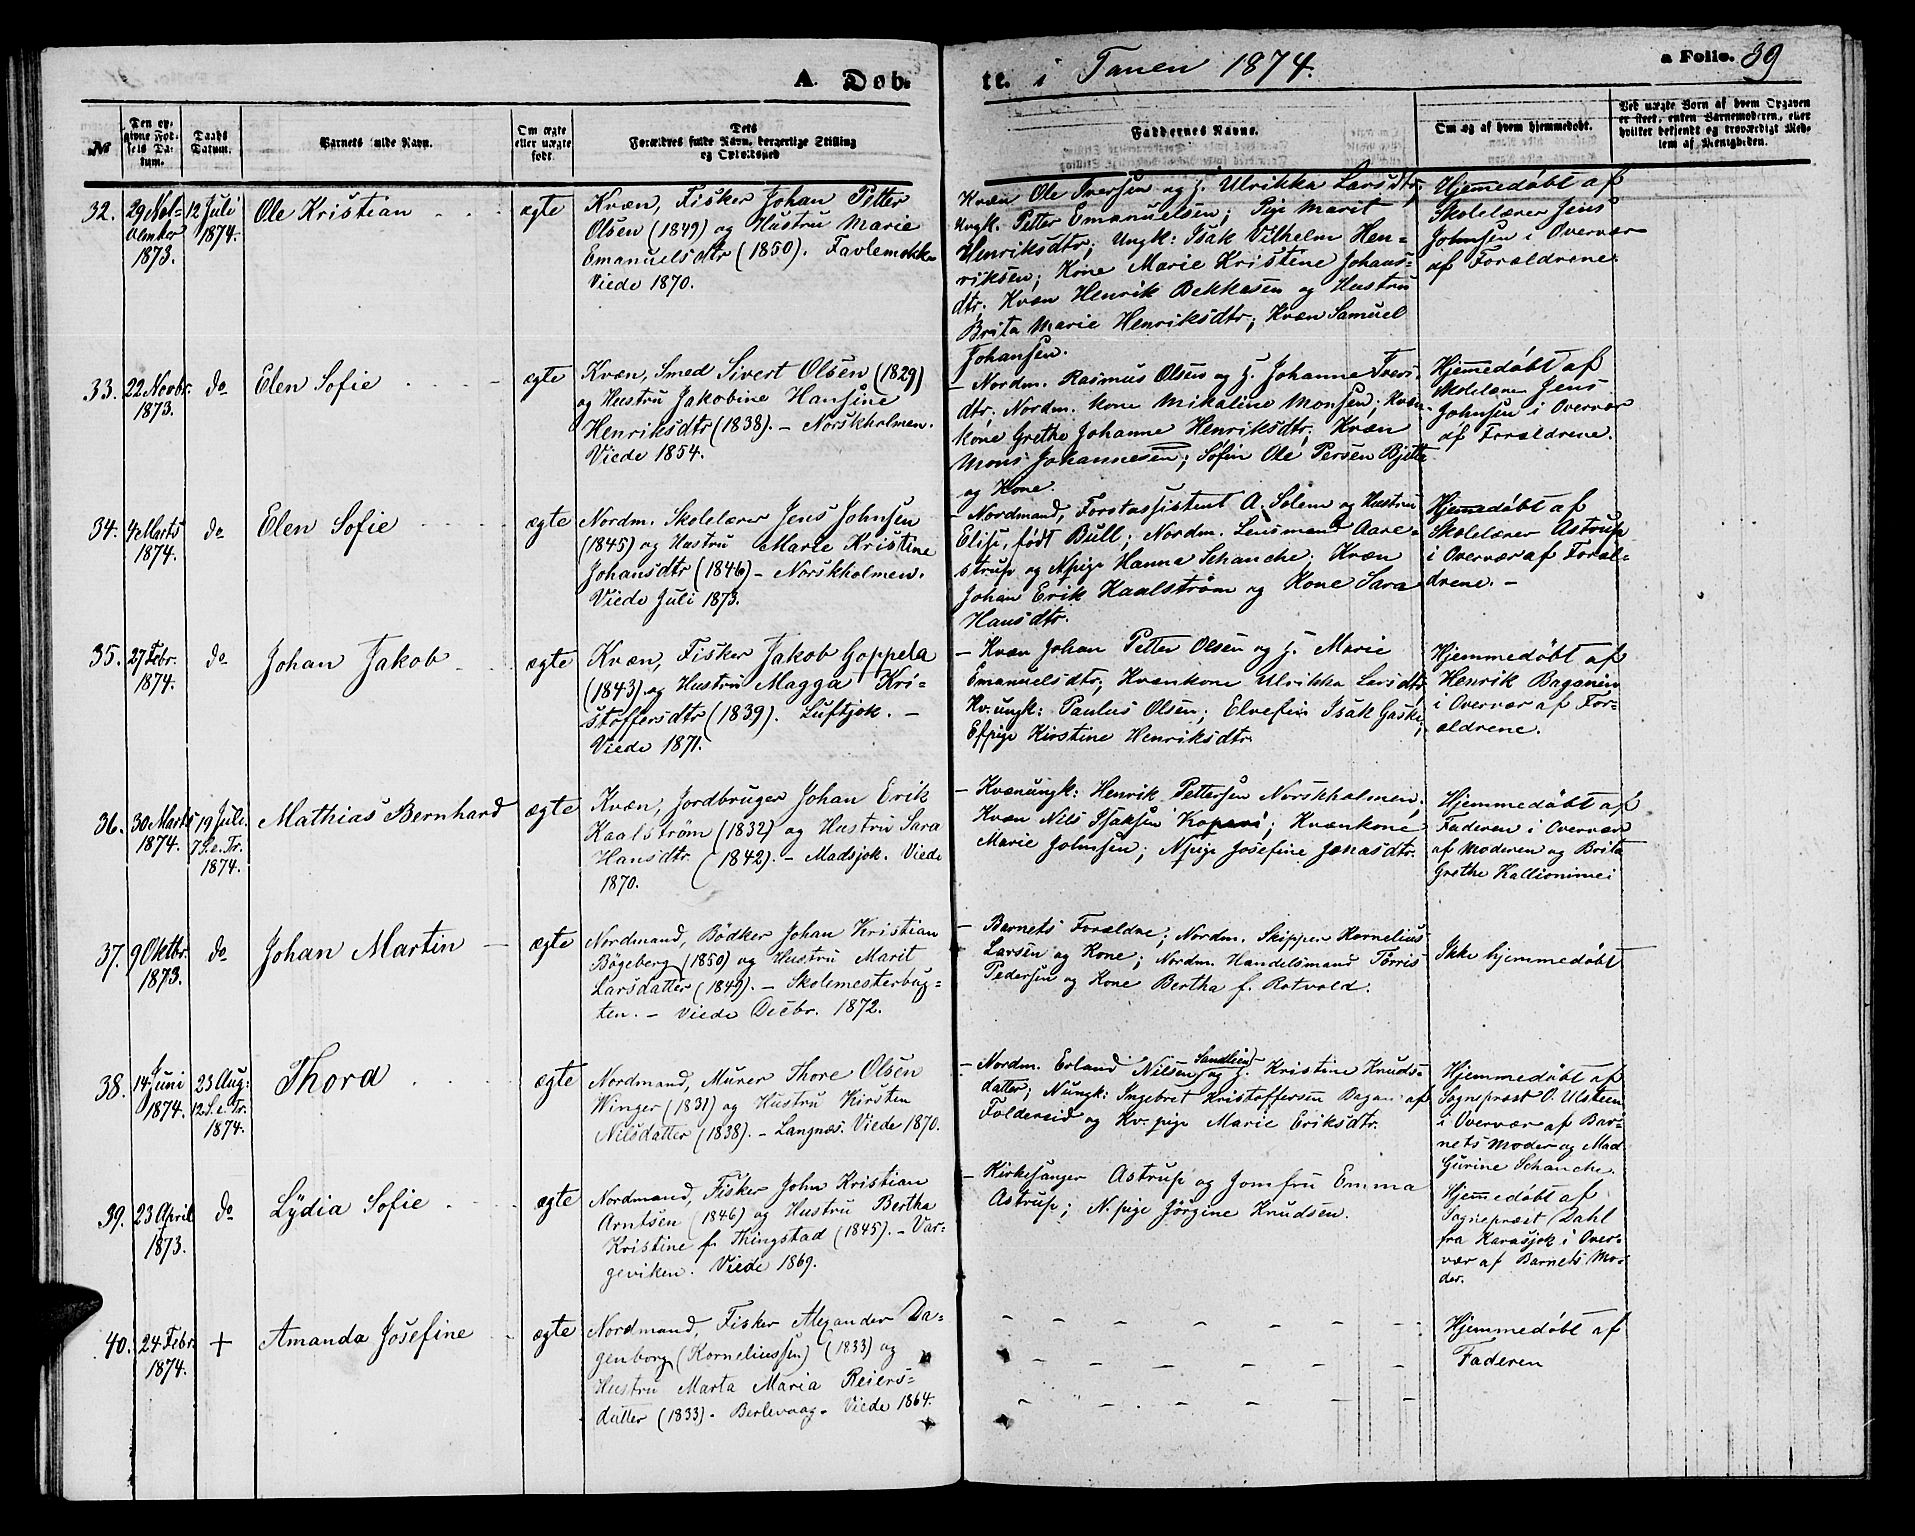 A. Døb.
te. i Tanen 1874.
a Folio. 39
№
Den op-
givne Fød-
sels Da-
tum.
Daabs
Datum.
Barnets fulde Navn.
Om ægte
eller uægte
født.
Dets
Forældres fulde Navn, borgerlige Stilling
og Opholdssted
Faddernes Navne.
Om og af hvem hjemmedøbt.
Ved uægte Børn af hvem Opgaven
er skeet, enten Barnemoderen, eller
hvilket bekjendt og troværdigt Med-
lem af Menigheden.
32.
29 Nov-
ember
1873.
12 Juli
1874.
Ole Kristian
ægte
Kvæn, Fisker Johan Petter
Olsen (1849) og Hustru Marie
Emanuelsdtr (1850). Favlemokka
Viede 1870.
Kvæn Ole Iversen og H. Ulrikka Larsdtr.
Ungk. Petter Emanuelsen; Pige Marit
Henriksdtr; Ungk: Isak Vilhelm Hen-
riksen; Kone Marie Kristine Johans-
dtr. Kvæn Henrik Bekkasen og Hustru
Brita Marie Henriksdtr; Kvæn Samuel
Johansen.
Hjemmedøbt af
Skolelærer Jens
Johnsen i Overvær
af Forældrene.
33.
22 Novbr.
1873.
do
Elen Sofie
ægte
Kvæn, Smed Sivert Olsen (1829)
og Hustru Jakobine Hansine
Henriksdtr (1838). – Norskholmen.
Viede 1854.
– Nordm. Rasmus Olsen og H. Johanne Ivers-
dtr. Nordm. Kone Mikaline Monsen; Kvæn-
kone Grethe Johanne Henriksdtr; Kvæn
Mons Johannesen; Søfin Ole Persen Bjette
og Kone.
Hjemmedøbt af
Skolelærer Jens
Johnsen i Overvær
af Forældrene.
34.
4 Marts
1874.
do
Elen Sofie
ægte
Nordm. Skolelærer Jens Johnsen
(1845) og Hustru Marie Kristine
Johansdtr (1846) – Norskholmen.
Viede Juli 1873.
– Nordmand, Forstassistent A. Solem og Hustru
Elise, født Bull; Nordm. Lensmand Aare-
strup og Npige Hanna Schanche. Kvæn
Johan Erik Kaalstrøm og Kone Sara
Hansdtr.
Hjemmedøbt af
Skolelærer Astrup
i Overvær af Foræl-
drene. –
35.
27 Febr.
1874.
do
Johan Jakob
ægte
Kvæn, Fisker Jakob Goppela
(1843) og Hustru Magga Kri-
stoffersdtr (1839). Luftjok. –
Viede 1871.
– Kvæn Johan Petter Olsen og H. Marie
Emanuelsdtr; Kvænkone Ulrikka Larsdtr
Kv. ungk: Paulus Olsen; Elvefin Isak Gaski;
Efpige Kirstine Henriksdtr.
Hjemmedøbt af
Henrik Baganien
i Overvær af For-
ældrene.
36.
30 Marts
1874.
19 Juli.
7 S. e. Tr.
1874.
Mathias Bernhard
ægte
Kvæn, Jordbruger Johan Erik
Kaalstrøm (1832) og Hustru Sara
Hansdtr (1842). – Madsjok. Viede
1870.
– Kvænungk: Henrik Pettersen Norskholmen,
Kvæn Nils Isaksen Kaperi; Kvænkone
Marie Johnsen; Npige Josefine Jonasdtr.
Hjemmedøbt af
Faderen i Overvær
af Moderen og Brita
Grethe Kallionimei
37.
9 Oktbr.
1873.
do
Johan Martin
ægte
Nordmand, Bødker Johan Kristian
Bøgeberg (1850) og Hustru Marit
Larsdatter (1849). – Skolemesterbug-
ten. – Viede Decbr. 1872.
– Barnets Forældre; Nordm. Skipper Kornelius
Larsen og Kone; Nordm. Handelsmand Tørris
Pedersen og Kone Bertha f. Rotvold.
Ikke hjemmedøbt
38.
14 Juni
1874.
23 Aug:
12 S. e. Tr.
1874.
Thora
ægte
Nordmand, Murer Thore Olsen
Winger (1831) og Hustru Kirsten
Nilsdatter (1838). – Langnæs. Viede 1870.
– Nordm. Erland Nilsen Sandlien og H. Kristine Knuds-
datter; Nungk: Ingebret Kristoffersen Bagan af
Foldereid og Kv. pige Marie Eriksdtr.
Hjemmedøbt af
Sognepræst O. Ulsteen
i Overvær af Bar-
nets Moder og Mad
Gurine Schanche.
39.
23 April
1873.
do
Lydia Sofie
ægte
Nordmand, Fisker John Kristian
Arntsen (1846) og Hustru Bertha
Kristine f. Thingstad (1845). – Var-
geviken. Viede 1869.
– Kirkesanger Astrup og Jomfru Emma
Astrup; N. pige Jørgine Knudsen.
Hjemmedøbt af
Sognepræst Dahl
fra Karasjok i Over-
vær af Barnets Mo-
der.
40.
24 Febr.
1874.
+
Amanda Josefine
ægte
Nordmand, Fisker Alexander Da-
genborg (Korneliussen) (1833) og
Hustru Marta Maria Reiers-
datter (1833). Berlevaag. Viede 1864.
Hjemmedøbt af
Faderen